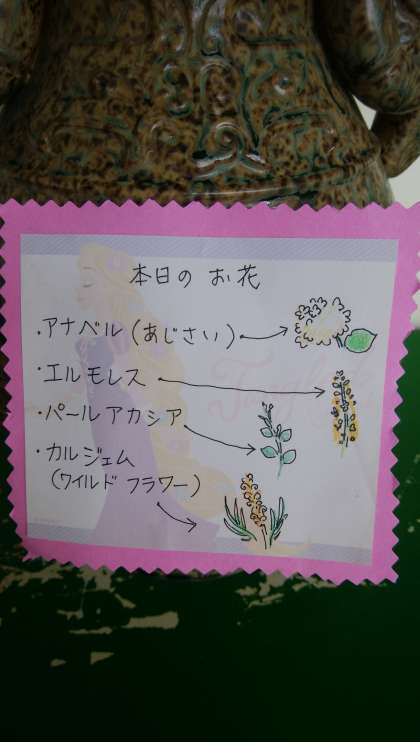 本日の お花
・アナベル(あじさい)
・エルモレス
・パールアカシア
・カルジェム
(ワイルドフラワー)
Tangled